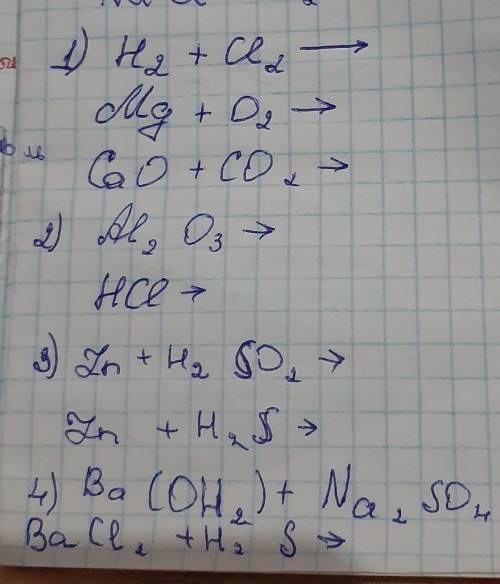 1) H₂ + Cl₂ →
Mg + O₂ →
CaO + CO₂ →
2) Al₂ O₃ →
HCl →
3) Zn + H₂ SO₂ →
Zn + H₂S →
4) Ba (OH₂) + Na₂ SO₄
BaCl₂ + H₂ S →